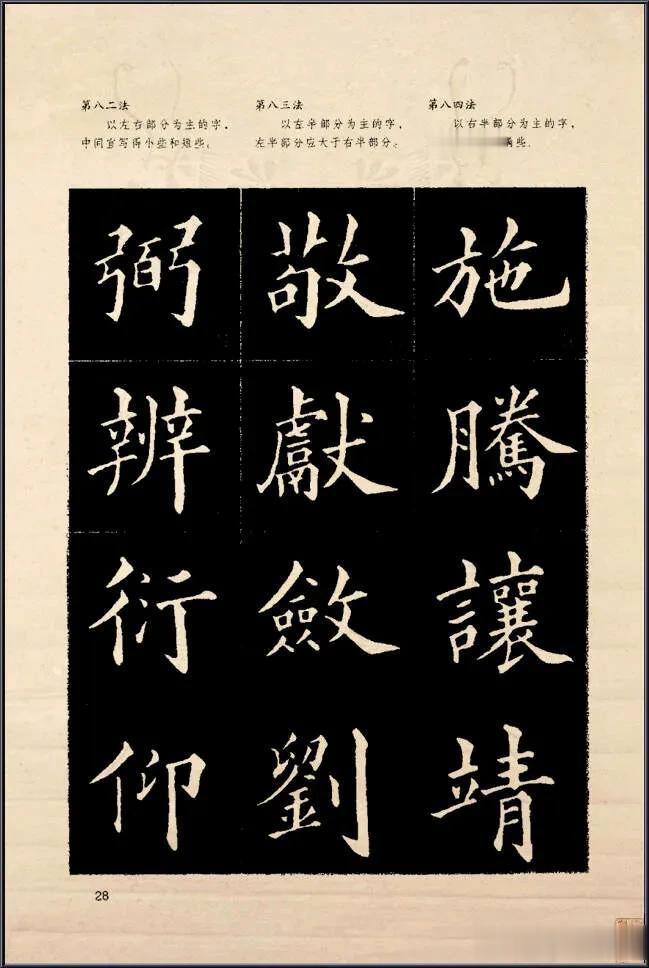 第八二法
以左右部分为主的字,
中间宜写得小些和短些。
第八三法
以左半部分为主的字,
左半部分应大于右半部分。
第八四法
以右半部分为主的字,
些.
弼 敬 施
辨 獻 騰
衍 斂 讓
仰 劉 靖
28